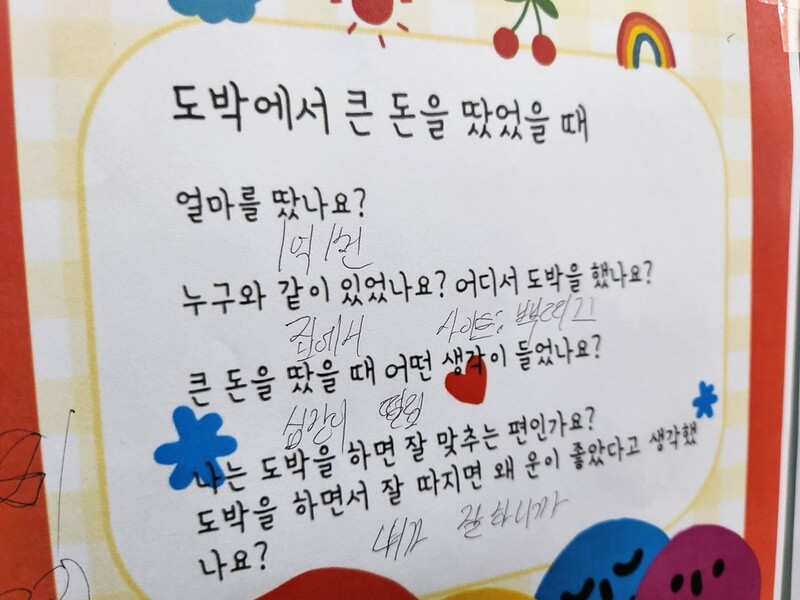 도박에서 큰 돈을 땄었을 때
얼마를 땄나요?
1억 1천
누구와 같이 있었나요? 어디서 도박을 했나요?
집에서 사이트:
큰 돈을 땄을 때 어떤 생각이 들었나요?
심장이 떨림
나는 도박을 하면 잘 맞추는 편인가요?
도박을 하면서 잘 따지면 왜 운이 좋았다고 생각했
내가 잘하니까
나요?